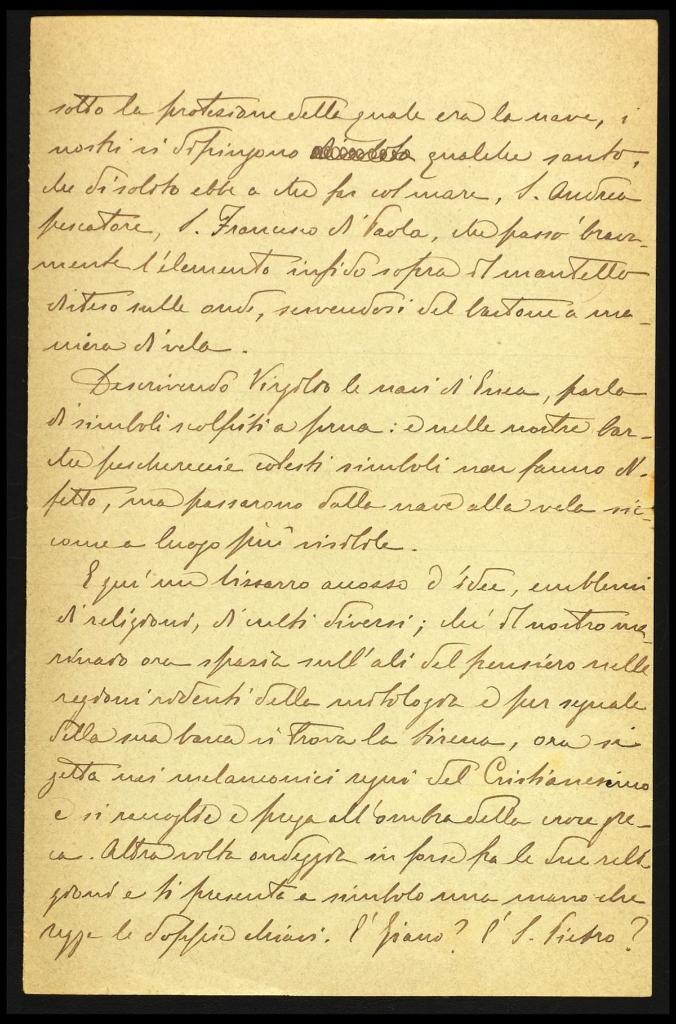 sotto la protezione della quale era la nave, i
nostri vi dipingono qualche santo,
che di solito ebbe a che far col mare, S. Andrea
pescatore, S. Francesco di Paola, che passò brava-
mente l'elemento infido sopra il mantello
disteso sulle onde, servendosi del bastone a ma-
niera di vela.
Descrivendo Virgilio le navi di Enea, parla
di simboli scolpiti a prua: e nelle nostre bar-
che pescherecie cotesti simboli non fanno di-
fetto, ma passarono dalla nave alla vela sic-
come a luogo più visibile.
E qui un bizzarro ammasso d'idee, emblemi
di religioni, di culti diversi; chè il nostro ma-
rinaro ora spazia sull'ali del pensiero nelle
regioni ridenti della mitologia e per segnale
della sua barca vi trova la Sirena, ora si
getta nei melanconici regni del Cristianesimo
e si raccoglie e prega all'ombra della croce gre-
ca. Altra volta ondeggia in forse fra le due reli-
gioni e ti presenta a simbolo una mano che
regge le doppie chiavi. È Giano? È S. Pietro?